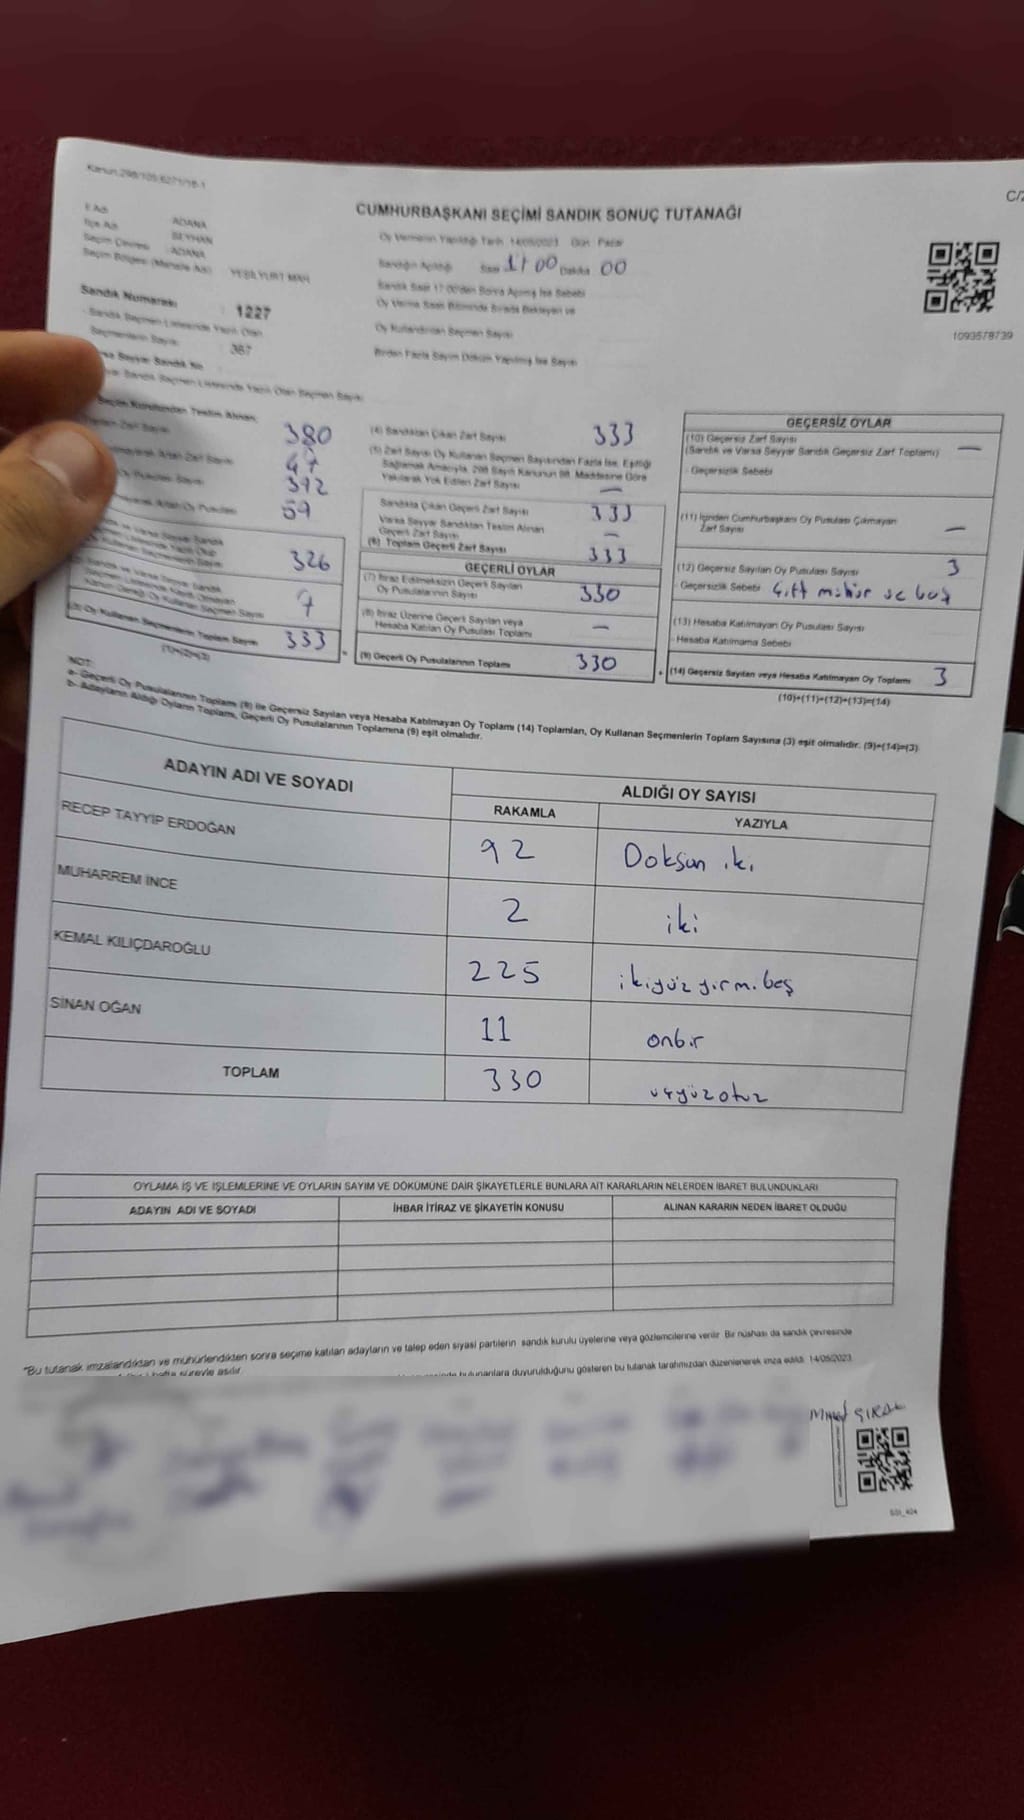 Kanun:298/105;6271/18-1
C/2
CUMHURBAŞKANI SEÇİMİ SANDIK SONUÇ TUTANAĞI
İl Adı ADANA
İlçe Adı SEYHAN
Seçim Çevresi ADANA
Seçim Bölgesi (Mahalle Adı) YEŞİLYURT MAH
Sandık Numarası : 1227
Sandık Seçmen Listesinde Yazılı Olan
Seçmenlerin Sayısı 367
Sandık Seçmen Listesinde Yazılı Olan Seçmen Sayısı
Oy Vermenin Yapıldığı Tarih 14/05/2023 Gün Pazar
Sandığın Açıldığı Saat 17 00 Dakika 00
Sandık Saat 17:00'den Sonra Açılmış İse Sebebi
Oy Verme Saati Bitiminde Sırada Bekleyen ve
Oy Kullandırılan Seçmen Sayısı
Birden Fazla Sayım Döküm Yapılmış İse Sayısı
1093578739
Seçim Kurulundan Teslim Alınan;
Zarf Sayısı 380
Artan Zarf Sayısı 47
Oy Pusulası Sayısı 392
Artan Oy Pusulası 59
326
7
(3) Oy Kullanan Seçmenlerin Toplam Sayısı 333
(1)+(2)=(3)
(4) Sandıktan Çıkan Zarf Sayısı 333
(5) Zarf Sayısı Oy Kullanan Seçmen Sayısından Fazla İse, Eşitliği
Sağlamak Amacıyla, 298 Sayılı Kanunun 98. Maddesine Göre
Yakılarak Yok Edilen Zarf Sayısı —
Sandıkta Çıkan Geçerli Zarf Sayısı 333
Varsa Seyyar Sandıktan Teslim Alınan
Geçerli Zarf Sayısı —
(6) Toplam Geçerli Zarf Sayısı 333
GEÇERLİ OYLAR
(7) İtiraz Edilmeksizin Geçerli Sayılan
Oy Pusulalarının Sayısı 330
(8) İtiraz Üzerine Geçerli Sayılan veya
Hesaba Katılan Oy Pusulası Toplamı —
(9) Geçerli Oy Pusulalarının Toplamı 330
GEÇERSİZ OYLAR
(10) Geçersiz Zarf Sayısı
(Sandık ve Varsa Seyyar Sandık Geçersiz Zarf Toplamı) —
Geçersizlik Sebebi
(11) İçinden Cumhurbaşkanı Oy Pusulası Çıkmayan
Zarf Sayısı —
(12) Geçersiz Sayılan Oy Pusulası Sayısı 3
Geçersizlik Sebebi Çift mühür ve boş
(13) Hesaba Katılmayan Oy Pusulası Sayısı
Hesaba Katılmama Sebebi
(14) Geçersiz Sayılan veya Hesaba Katılmayan Oy Toplamı 3
(10)+(11)+(12)+(13)=(14)
NOT:
a- Geçerli Oy Pusulalarının Toplamı (9) ile Geçersiz Sayılan veya Hesaba Katılmayan Oy Toplamı (14) Toplamları, Oy Kullanan Seçmenlerin Toplam Sayısına (3) eşit olmalıdır. (9)+(14)=(3).
b- Adayların Aldığı Oyların Toplamı, Geçerli Oy Pusulalarının Toplamına (9) eşit olmalıdır.
ADAYIN ADI VE SOYADI
ALDIĞI OY SAYISI
RAKAMLA YAZIYLA
RECEP TAYYİP ERDOĞAN 92 Doksan iki
MUHARREM İNCE 2 iki
KEMAL KILIÇDAROĞLU 225 ikiyüz yirmi beş
SİNAN OĞAN 11 onbir
TOPLAM 330 üçyüz otuz
OYLAMA İŞ VE İŞLEMLERİNE VE OYLARIN SAYIM VE DÖKÜMÜNE DAİR ŞİKAYETLERLE BUNLARA AİT KARARLARIN NELERDEN İBARET BULUNDUKLARI
ADAYIN ADI VE SOYADI İHBAR İTİRAZ VE ŞİKAYETİN KONUSU ALINAN KARARIN NEDEN İBARET OLDUĞU
"Bu tutanak imzalandıktan ve mühürlendikten sonra seçime katılan adayların ve talep eden siyasi partilerin sandık kurulu üyelerine veya gözlemcilerine verilir. Bir nüshası da sandık çevresinde
hafta süreyle asılır. bulunanlara duyurulduğunu gösteren bu tutanak tarafımızdan düzenlenerek imza edildi. 14/05/2023